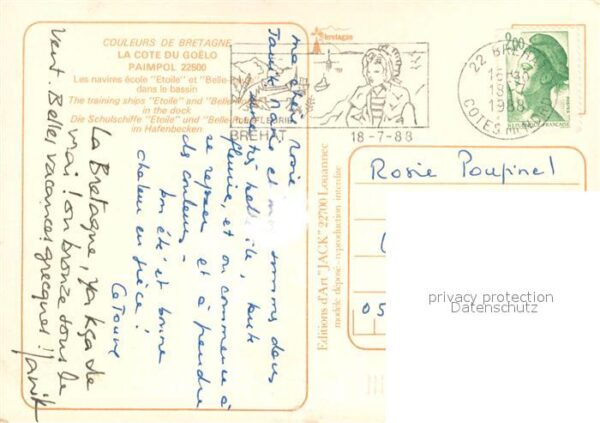 COULEURS DE BRETAGNE
LA COTE DU GOËLO
PAIMPOL 22500
Les navires école "Etoile" et "Belle-Poule"
dans le bassin
The training ships "Etoile" and "Belle-Poule"
in the dock
Die Schulschiffe "Etoile" und "Belle-Poule"
im Hafenbecken
bretagne
ILE FLEURIE
BREHAT
18-7-88
22 BREHAT
18-7
1988
COTES DU NORD
2,00
Editions d'Art "JACK" 22700 Louannec
modèle déposé - reproduction interdite
ma chère Rosie
Janik nous et moi sommes dans
très belle île, toute
fleurie, et on commence à
se reposer et à prendre
des couleurs -
bon été et bonne
chaleur en grèce !
La Bretagne, ya kça de
vrai ! on bronze tous le
vent. Belles vacances grecques ! Janik
Rosie Poupinel
05
privacy protection
Datenschutz